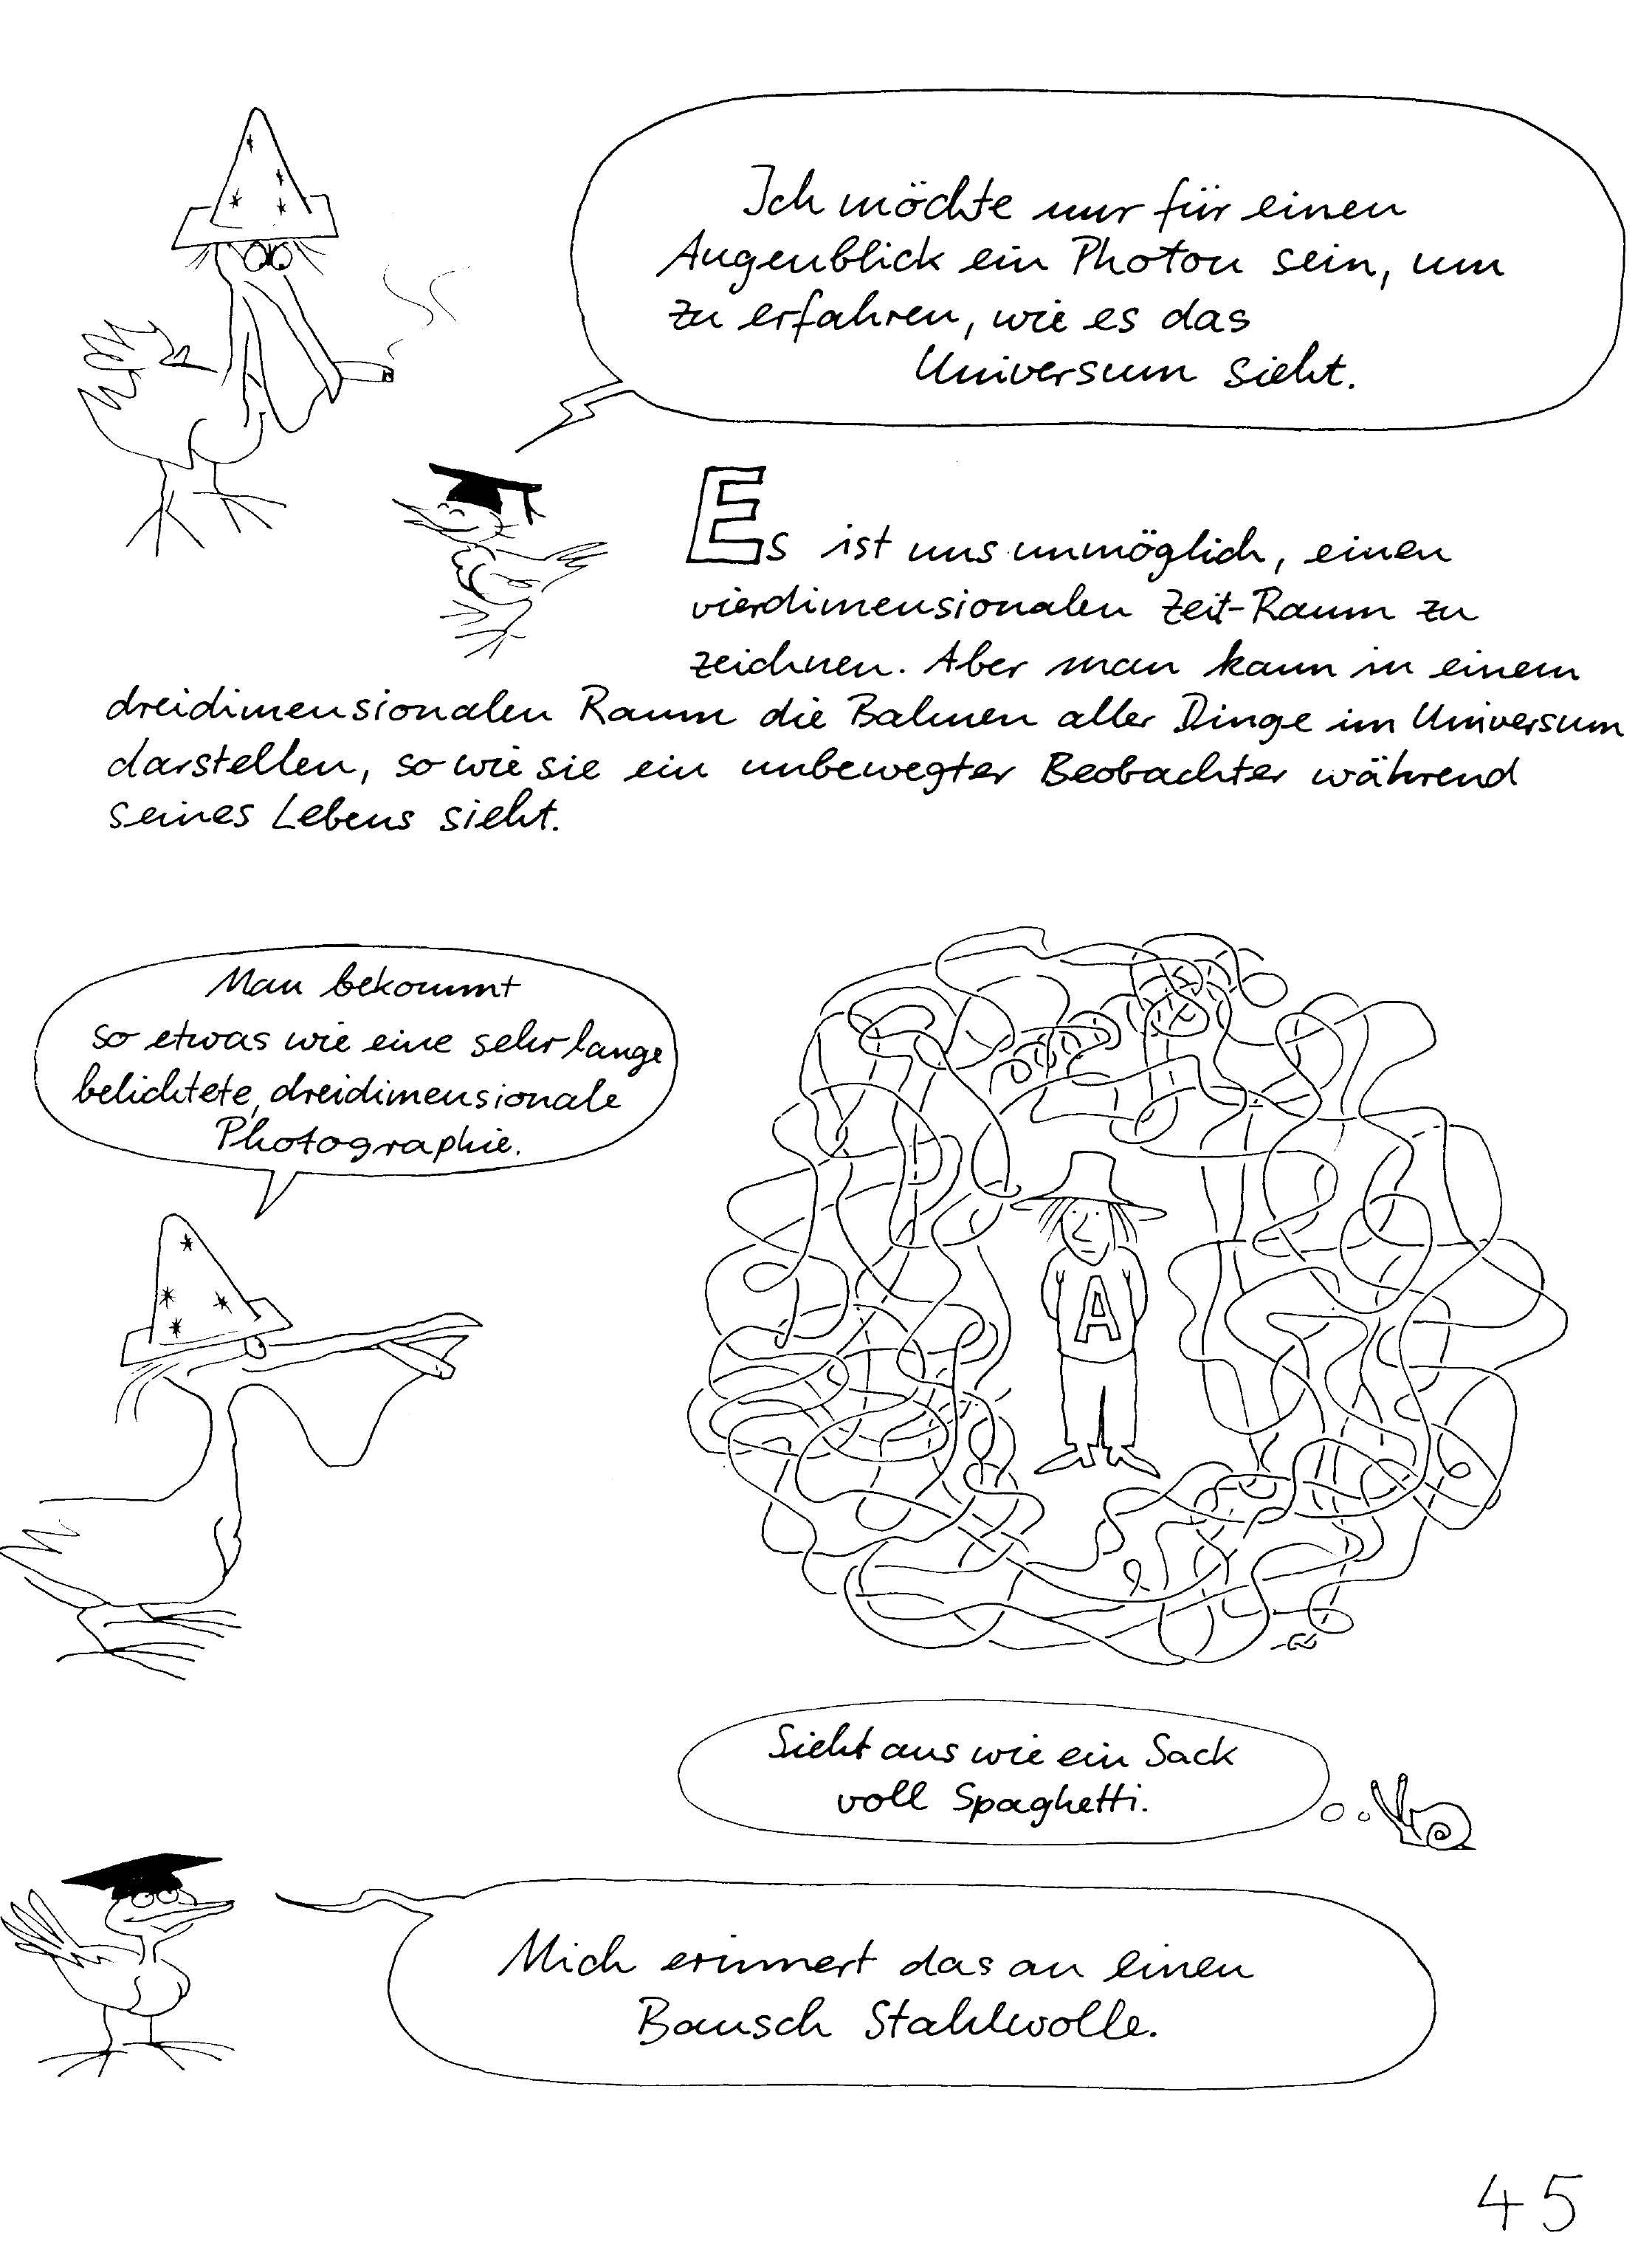 Ich möchte nur für einen
Augenblick ein Photon sein, um
zu erfahren, wie es das
Universum sieht.
Es ist uns unmöglich, einen
vierdimensionalen Zeit-Raum zu
zeichnen. Aber man kann in einem
dreidimensionalen Raum die Bahnen aller Dinge im Universum
darstellen, so wie sie ein unbewegter Beobachter während
seines Lebens sieht.
Man bekommt
so etwas wie eine sehr lange
belichtete, dreidimensionale
Photographie.
A
Sieht aus wie ein Sack
voll Spaghetti.
Mich erinnert das an einen
Bausch Stahlwolle.
45